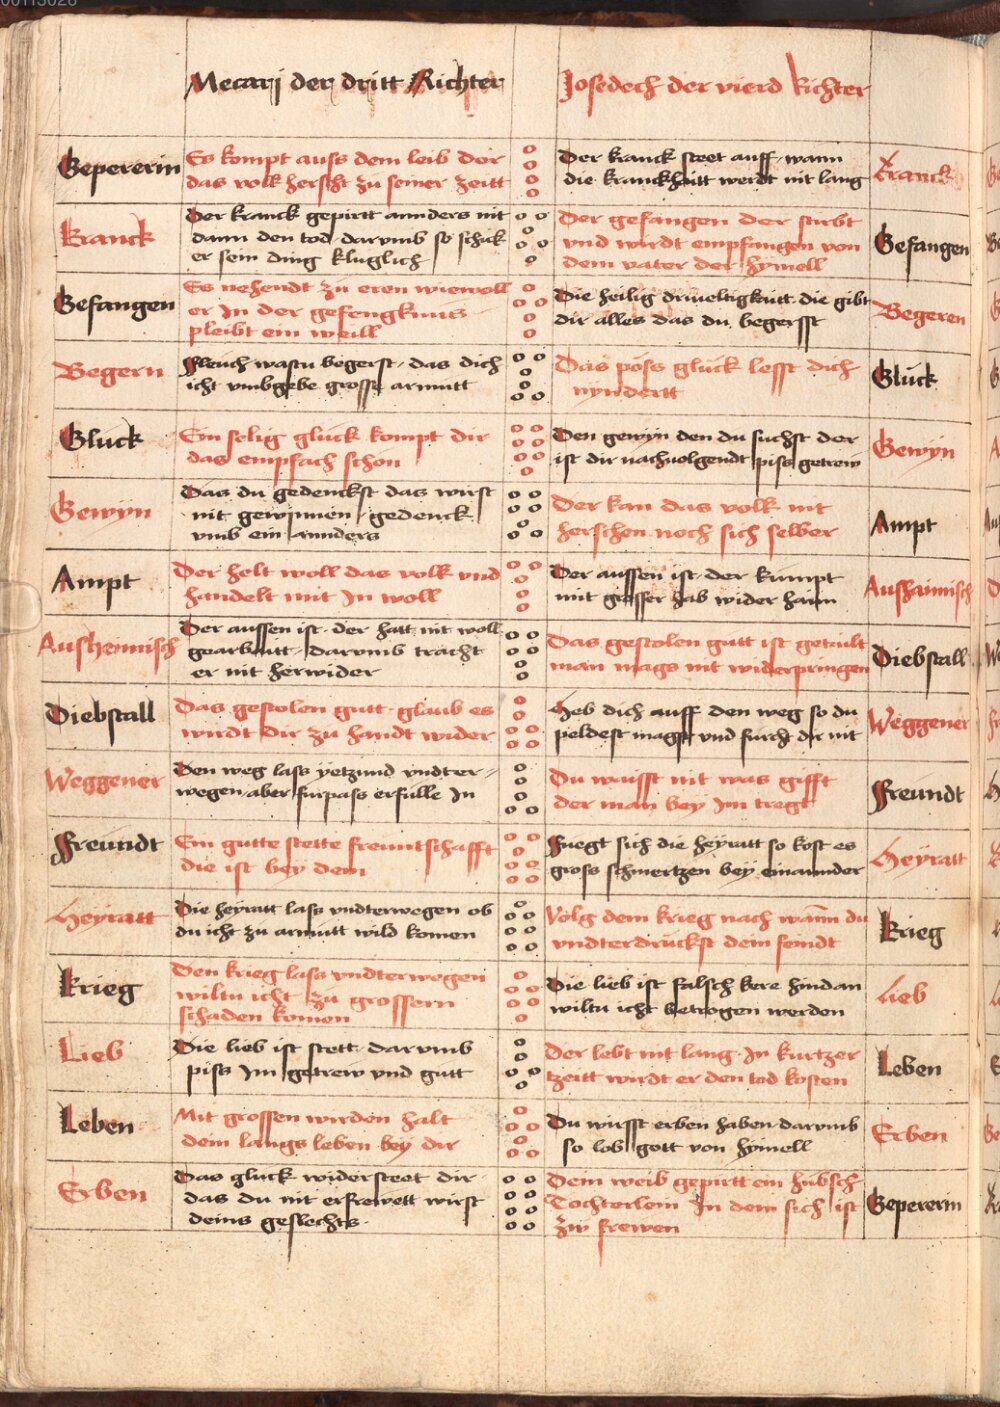 00113028
Mecarj der dritt Richter
Josedech der vierd Richter
Gepererin
Es kompt auss dem leib der
das volk herscht zu seiner zeitt
Der kranck steet auff wann
die kranckhaitt werdt nit lang
Kranck
Kranck
Der kranck gepirtt annders nit
dann den tod darvmb so schick
er sein ding kluglich
Der gefangen der stirbt
vnd wirdt empfangen von
dem vater der hymell
Gefangen
Gefangen
Es nehendt zu eren wiewoll
er In der gefengknus
pleibt ein weill
Die heilig driueltigkaitt die gibt
dir alles das du begersst
Begeren
Begern
Fleuch wastu begerst das dich
icht vmbgebe grosse armutt
Das poss gluck lesst dich
nyndertt
Gluck
Gluck
Ein selig gluck kompt dir
das empfach schon
Den gewyn den du suchst der
ist dir nachuolgendt piss getrew
Gewyn
Gewyn
Das du gedenckst das wirst
nit gewinnen gedenck
vmb ein annders
Der kan das volk nit
herschen noch sich selber
Ampt
Ampt
Der helt woll das volk vnd
handelt mit In woll
Der aussen ist der kumpt
mit grosser hab wider haim
Aushaimisch
Ausheimisch
Der aussen ist der hatt nit woll
gearbaitt darvmb tracht
er nit herwider
Das gestolen gutt ist getailt
man mags nit widerpringen
Diebstall
Diebstall
Das gestolen gutt glaub es
wirdt dir zu handt wider
Heb dich auff den weg so du
peldest magst vnd furcht dir nit
Weggener
Weggener
Den weg lass yetzund vndter-
wegen aber furpass erfulle In
Du waisst nit was gifft
der man bey Im tregt
Freundt
Freundt
Ein gutte stette freuntschafft
die ist bey dem
Fuegt sich die heyratt so kost es
gross schmertzen bey einannder
Heyratt
Heyratt
Die heyratt lass vndterwegen ob
du icht zu armutt wild komen
Volg dem krieg nach wann du
vndterdruckst dein feindt
Krieg
Krieg
Den krieg lass vndterwegen
wiltu icht zu grossern
schaden komen
Die lieb ist falsch kere hindan
wiltu icht betrogen werden
Lieb
Lieb
Die lieb ist stett darvmb
piss Im getrew vnd gutt
Der lebt nit lang In kurtzer
tzeitt wirdt er den tod kosten
Leben
Leben
Mit grossen wirden halt
dem langs leben bey dir
Du wirsst erben haben darvmb
so lob gott von hymell
Erben
Erben
Das gluck widersteet dir
das du nit erfrewett wirst
deins geslechts
Dein weib gepirtt ein hubsch
Tochterlein In dem sich ist
zw frewen
Gepererin